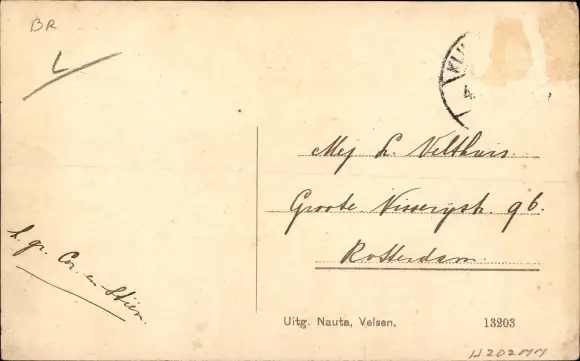 BR
L
KLU
4
Mej L. Velthuis.
Groote Visserijstr. 96.
Rotterdam.
h. gr. Cor. en Stien.
Uitg. Nauta, Velsen. 13203